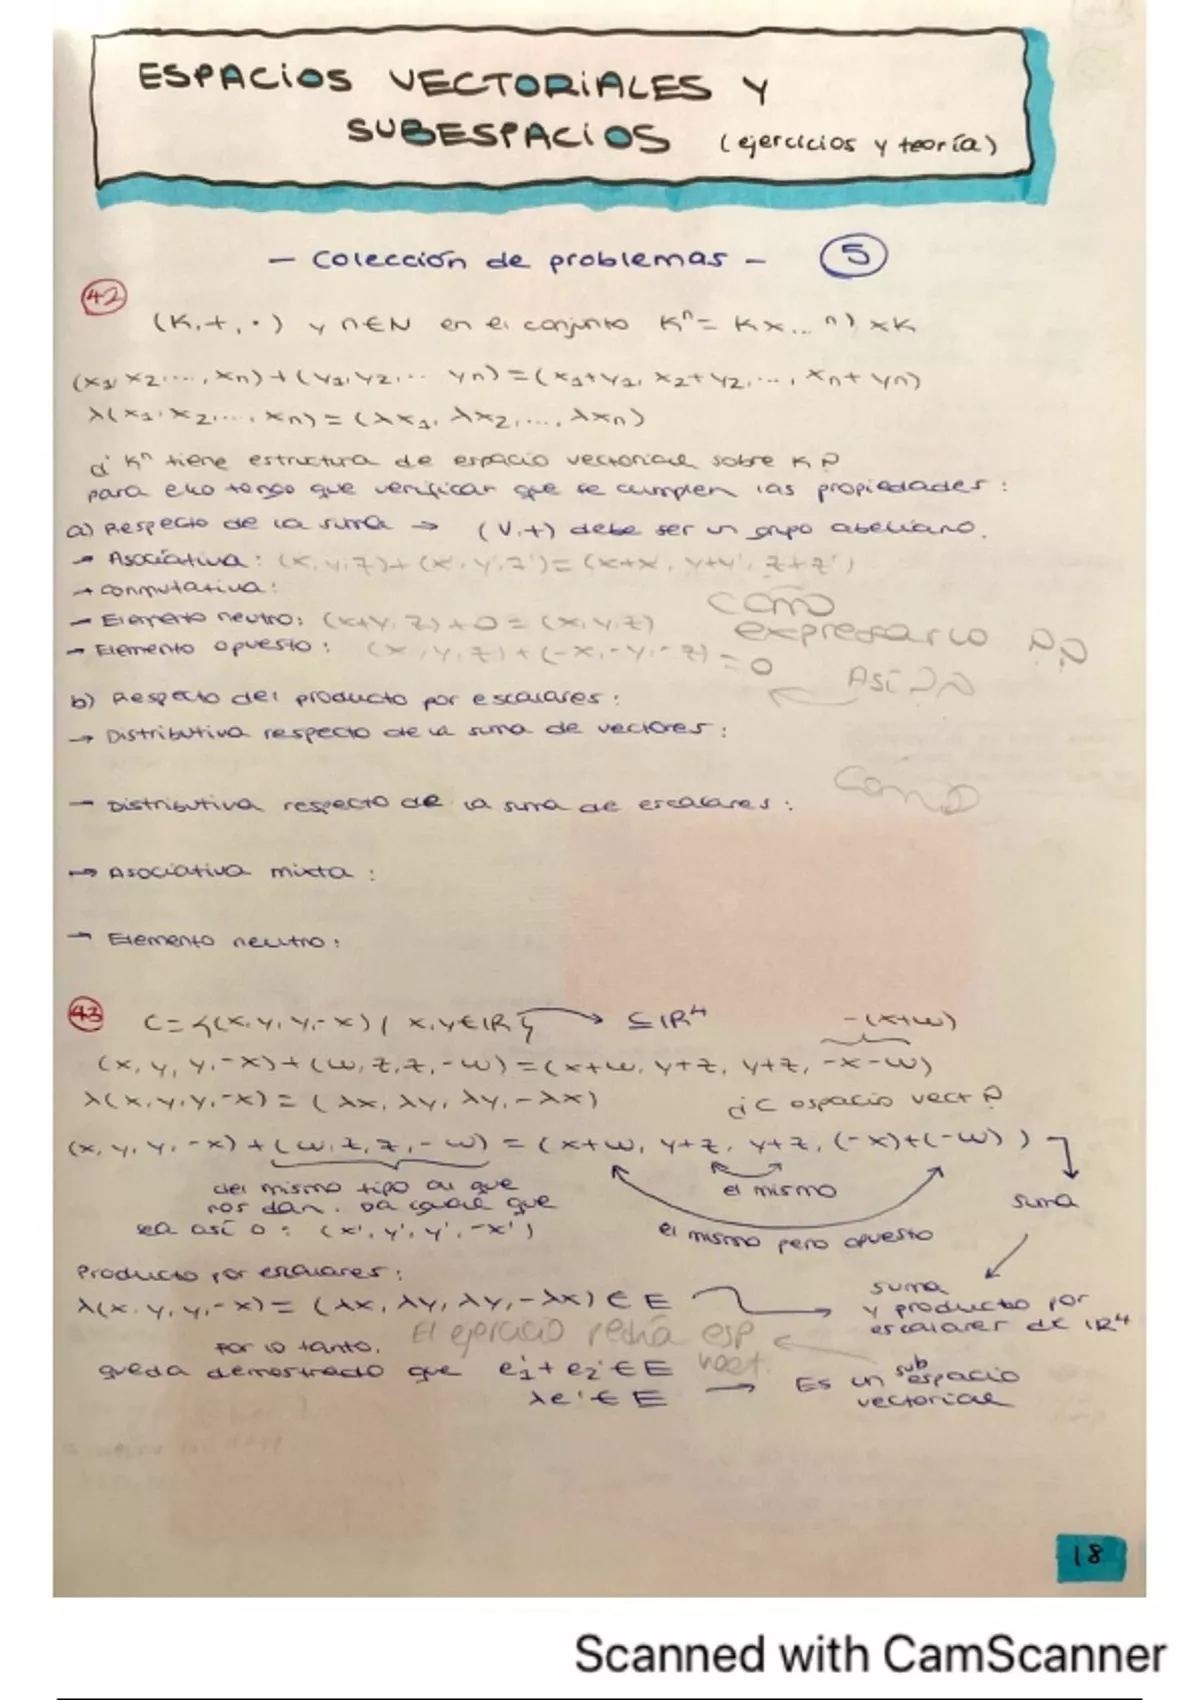 ESPACIOS VECTORIALES Y
SUBESPACIOS (ejercicios y teoría)
- Colección de problemas - 5
42
(K,+,·) y n∈N en el conjunto Kⁿ = Kx... n) xK
(x1, x2, ..., xn) + (y1, y2, ... yn) = (x1+y1, x2+y2, ..., xn+yn)
λ(x1, x2, ..., xn) = (λx1, λx2, ..., λxn)
¿ Kⁿ tiene estructura de espacio vectorial sobre K?
para ello tengo que verificar que se cumplen las propiedades:
a) Respecto de la suma → (V,+) debe ser un grupo abeliano.
→ Asociativa: (x,y,z)+(x',y',z')=(x+x', y+y', z+z')
→ Conmutativa:
→ Elemento neutro: (x+y,z)+0=(x,y,z)
cómo
expresarlo ??
→ Elemento opuesto: (x,y,z)+(-x,-y,-z)=0
Así ??
b) Respecto del producto por escalares:
→ Distributiva respecto de la suma de vectores:
Como
→ Distributiva respecto de la suma de escalares:
→ Asociativa mixta:
→ Elemento neutro:
43
C={(x,y,y,-x) / x,y∈IR} → ⊆ IR⁴ -(x+w)
(x,y,y,-x)+(w,z,z,-w)=(x+w, y+z, y+z, -x-w)
λ(x,y,y,-x)=(λx, λy, λy, -λx) ¿C espacio vect?
(x,y,y,-x)+(w,z,z,-w)=(x+w, y+z, y+z, (-x)+(-w))
del mismo tipo al que
nos dan. Da igual que
sea así o: (x',y',y',-x')
el mismo
el mismo pero opuesto
suma
Producto por escalares:
λ(x,y,y,-x)=(λx, λy, λy, -λx)∈E
suma
y producto por
escalares de IR⁴
El ejercicio pedía esp
vect.
Por lo tanto,
queda demostrado que e1'+e2'∈E
λe'∈E → Es un subespacio
vectorial
18
Scanned with CamScanner